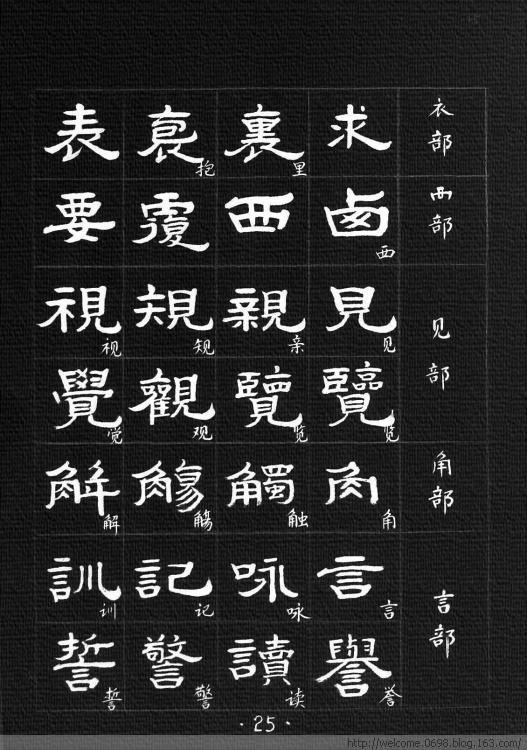 衣部 求 裏里 袌抱 表
西部 卤西 西 覆 要
见部 見见 親亲 規规 視视
覽览 覽览 觀观 覺觉
角部 角角 觸触 觴觴 解解
言部 言言 咏咏 記记 訓训
譽誉 讀读 警警 誓誓
·25·
http://welcome.0698.blog.163.com/